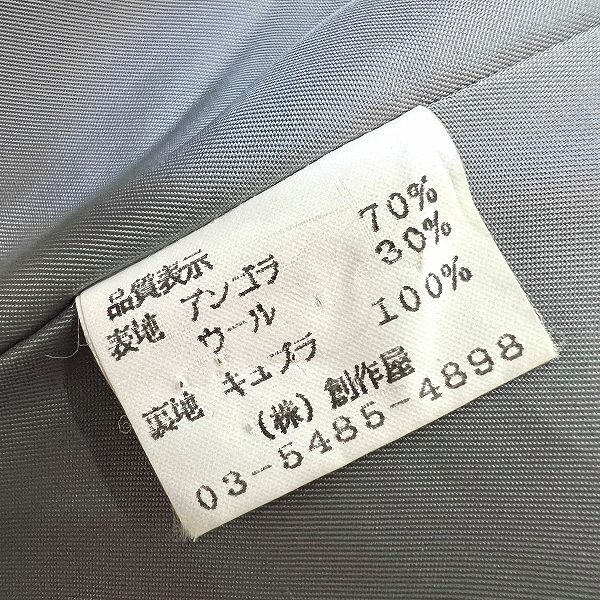 品質表示
表地 アンゴラ 70%
ウール 30%
裏地 キュプラ 100%
(株) 創作屋
03-5485-4898